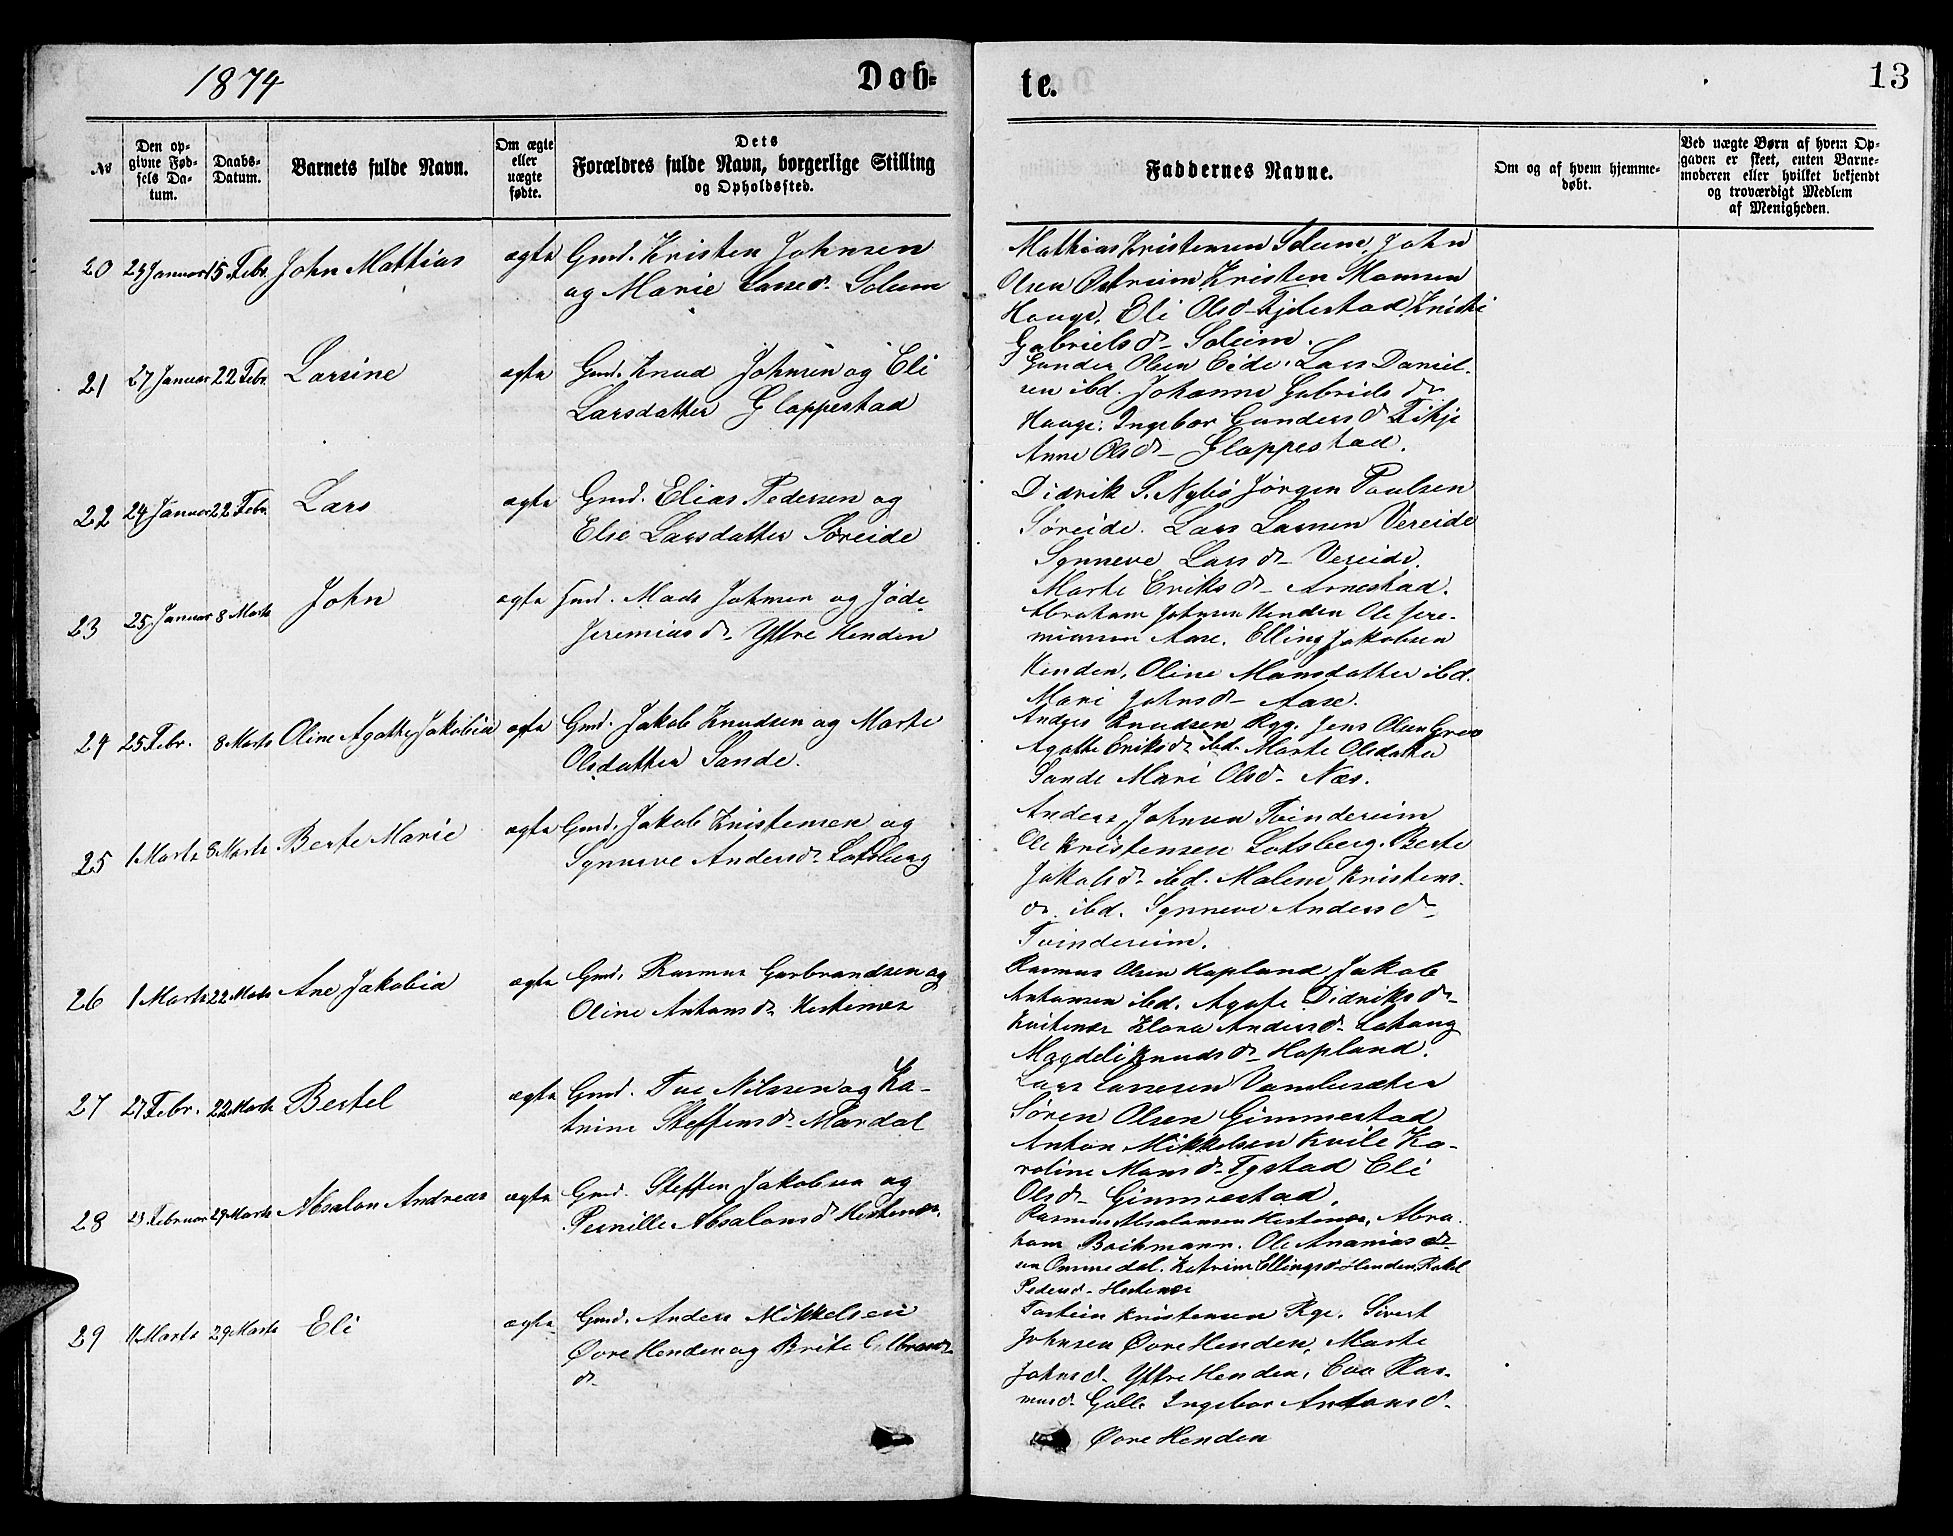 1874 Døb-
te. 13
No
Den op-
givne Fød-
sels Da-
tum.
Daabs-
Datum.
Barnets fulde Navn.
Om ægte
eller
uægte
fødte.
Dets
Forældres fulde Navn, borgerlige Stilling
og Opholdssted.
Faddernes Navne.
Om og af hvem hjemme-
døbt.
Ved uægte Børn af hvem Op-
gaven er skeet, enten Barne-
moderen eller hvilket bekjendt
og troværdigt Medlem
af Menigheden.
20 Januar 15 Febr. John Mathias ægte Gmd. Kristen Johnsen
og Marie Lassed. Solem
Mathias Kristensen Soleim John
Olsen Østreim, Kristen Monsen
Hauge, Eli Olsd- Fjelestad, Kristi
Gabrielsd- Soleim.
21 27 Januar 22 Febr. Larsine ægte Gmd. Knud Johnsen og Eli
Larsdatter Gloppestad
Gunder Olsen Eide. Lars Daniel-
sen ibd. Johanne Gabrielsd-
Hauge. Ingebor Gundersd
Anne Olsd- Gloppestad.
22 24 Januar 22 Febr. Lars ægte Gmd. Elias Pedersen og
Else Larsdatter Søreide
Didrik P. Nybø Jørgen Paulsen
Søreide. Lars Larsen Vereide
Synneve Larsd- Vereide.
Marte Eriksd- Arnestad.
23 25 Januar 8 Marts John ægte Gmd. Mads Johnsen og
Jeremiasd- Yttre Henden
Abraham Johnsen Henden Ole Jere-
miassen Aase. Elling Jakobsen
Henden, Oline Monsdatter ibd.
Mari Johnsd- Aase.
24 25 Febr. 8 Marts Oline Agathe Jakobia ægte Gmd. Jakob Knudsen og Marte
Olsdatter Sande.
Anders Knudsen Ryg. Jens Olsen
Agathe Eriksd- ibd. Marte Olsdatter
Sande Mari Olsd- Næs.
25 1 Marts 8 Marts Berte Marie ægte Gmd. Jakob Kristensen og
Synneve Andersd- Lotsberg
Anders Johnsen Tvindereim
Ole Kristensen Lotsberg. Berte
Jakobsd- ibd. Malene Kristens-
d- ibd. Synneve Andersd-
Tvindereim.
26 1 Marts 22 Marts Ane Jakobia ægte Gmd. Rasmus Garbrandsen og
Oline Antonsd- Hestenes
Rasmus Olsen Hopland Jakob
Antonsen ibd. Agate Didriksd-
Klara Andersd-
Magdeli Knudsd- Hopland.
27 27 Febr. 22 Marts Bertel ægte Gmd. Tue Nilssen og Ka-
trine Steffensd- Mardal
Lars Larsen
Søren Olsen Gimmestad
Anton Mikkelsen Kvile Ka-
roline Monsd- Tystad Eli
Olsd- Gimmestad.
28 Februar 29 Marts Absalon Andreas ægte Gmd. Steffen Jakobsen og
Pernille Absalonsd- Hestenes.
Rasmus Absalonsen Hestenes, Abra-
ham Boihmann. Ole Ananias-
sen Ommedal. Katrine Ellingsd- Henden, Rakel
Pedersd- Hestenes
29 11 Marts 29 Marts Eli ægte Gmd. Anders Mikkelsen
Øvre Henden og Brite
d-
Torstein Kristensen Ryg. Sivert
Johnsen Øvre Henden, Marte
Johnsd- Yttre Henden, Eva Ras-
musd- Ingebor Antonsd-
Øvre Henden